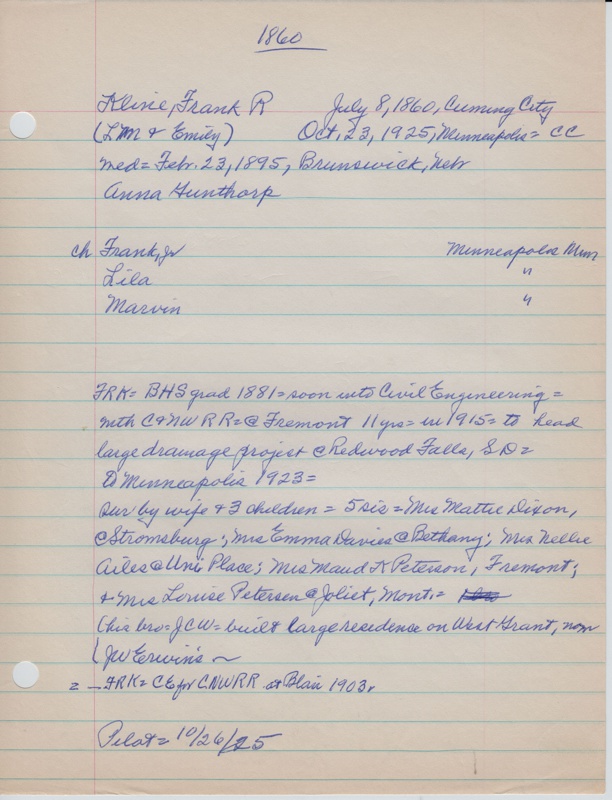 1860
Kline, Frank R July 8, 1860, Cuming City
(L.M & Emily) Oct, 23, 1925, Minneapolis = CC
med = Febr. 23, 1895, Brunswick, Nebr
Anna Gunthorp
ch Frank, Jr Minneapolis Minn
Lila "
Marvin "
FRK = BHS grad 1881 = soon into Civil Engineering =
with C&NW RR = @ Fremont 11 yrs = in 1915 = to head
large drainage project @ Redwood Falls, S D =
to Minneapolis 1923 =
sur by wife & 3 children = 5 sis = Mrs Mattie Dixon,
@ Stromsburg; Mrs Emma Davies @ Bethany; Mrs Nellie
Ailes @ Uni Place; Mrs Maud K Peterson, Fremont;
& Mrs Louise Petersen @ Joliet, Mont. =
(his bro = JCW = built large residence on West Grant, now
(JW Erwin's ~
2 — FRK = CE for CNWRR at Blair 1903.
Pilot = 10/26/25